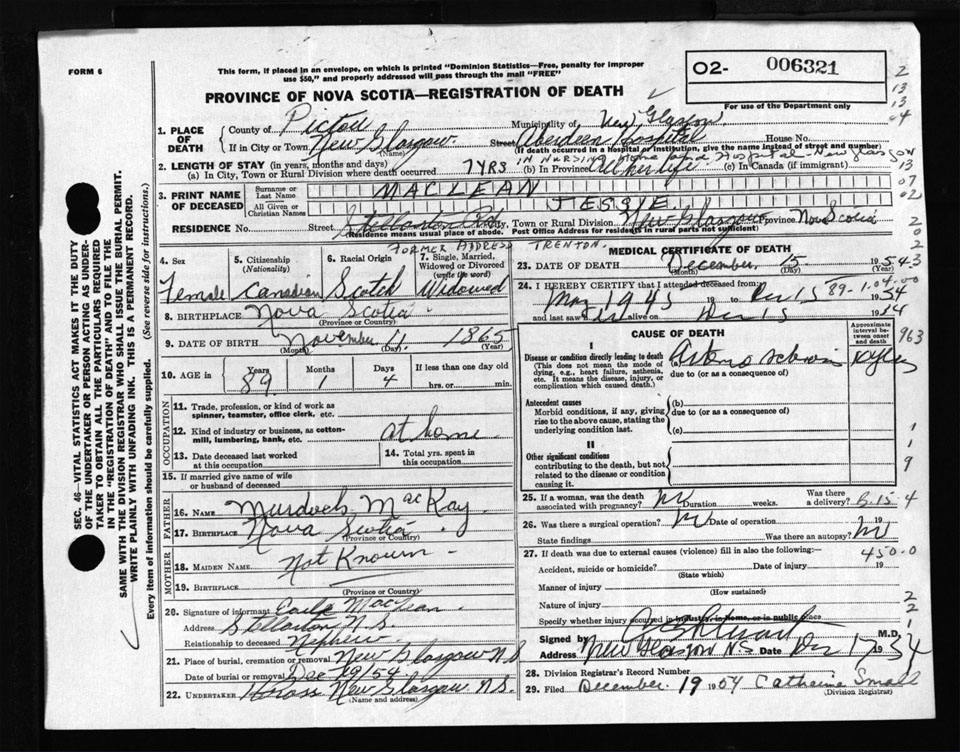 FORM 6
This form, if placed in an envelope, on which is printed "Dominion Statistics—Free, penalty for improper
use $50," and properly addressed will pass through the mail "FREE"
02- 006321
For use of the Department only
PROVINCE OF NOVA SCOTIA—REGISTRATION OF DEATH
1. PLACE OF DEATH
County of Pictou Municipality of New Glasgow
If in City or Town New Glasgow (Name) Street Aberdeen Hospital House No.
(If death occurred in a hospital or institution, give the name instead of street and number)
IN NURSING Home and Hospital - New Glasgow
2. LENGTH OF STAY (in years, months and days)
(a) In City, Town or Rural Division where death occurred 7 YRS (b) In Province All her life (c) In Canada (if immigrant)
3. PRINT NAME OF DECEASED
Surname or Last Name MACLEAN
All Given or Christian Names JESSIE
RESIDENCE No. Street Stellarton Rd City, Town or Rural Division New Glasgow Province Nova Scotia
(Residence means usual place of abode. Post Office Address for residents in rural parts not sufficient)
FORMER ADDRESS TRENTON.
4. Sex Female
5. Citizenship (Nationality) Canadian
6. Racial Origin Scotch
7. Single, Married, Widowed or Divorced (write the word) Widowed
8. BIRTHPLACE Nova Scotia (Province or Country)
9. DATE OF BIRTH November (Month) 11 (Day) 1865 (Year)
10. AGE in Years 89 Months 1 Days 4 If less than one day hrs. or min.
OCCUPATION
11. Trade, profession, or kind of work as spinner, teamster, office clerk, etc.
12. Kind of industry or business, as cotton-mill, lumbering, bank, etc. at home
13. Date deceased last worked at this occupation
14. Total yrs. spent in this occupation
15. If married give name of wife or husband of deceased
FATHER
16. Name Murdoch MacKay
17. BIRTHPLACE Nova Scotia (Province or Country)
MOTHER
18. MAIDEN NAME Not Known
19. BIRTHPLACE (Province or Country)
20. Signature of informant MacLean
Address Stellarton N.S.
Relationship to deceased Nephew
21. Place of burial, cremation or removal New Glasgow N.S
Date of burial or removal Dec 19/54
22. UNDERTAKER New Glasgow N.S. (Name and address)
MEDICAL CERTIFICATE OF DEATH
23. DATE OF DEATH December (Month) 15 (Day) 1954 (Year)
24. I HEREBY CERTIFY that I attended deceased from:
May 1945 19 to Dec 15 1954
and last saw alive on Dec 15 1954
89-1.04.00
CAUSE OF DEATH
Approximate interval between onset and death
I
Disease or condition directly leading to death
(This does not mean the mode of dying, e.g., heart failure, asthenia, etc. It means the disease, injury, or complication which caused death.)
due to (or as a consequence of)
Antecedent causes
Morbid conditions, if any, giving rise to the above cause, stating the underlying condition last.
(b)
due to (or as a consequence of)
(c)
II
Other significant conditions
contributing to the death, but not related to the disease or condition causing it.
963
25. If a woman, was the death associated with pregnancy? No Duration weeks. Was there a delivery?
26. Was there a surgical operation? No Date of operation 19
State findings Was there an autopsy? No
27. If death was due to external causes (violence) fill in also the following:—
450.0
Accident, suicide or homicide? (State which) Date of injury 19
Manner of injury (How sustained)
Nature of injury
Specify whether injury occurred in industry, in home, or in public place
Signed by M.D.
Address New Glasgow NS Date Dec 17 1954
28. Division Registrar's Record Number
29. Filed December 19 1954 Catherine Small (Division Registrar)
SEC. 46—VITAL STATISTICS ACT MAKES IT THE DUTY
OF THE UNDERTAKER OR PERSON ACTING AS UNDER-
TAKER TO OBTAIN ALL THE PARTICULARS REQUIRED
IN THE "REGISTRATION OF DEATH" AND TO FILE THE
SAME WITH THE DIVISION REGISTRAR WHO SHALL ISSUE THE BURIAL PERMIT.
WRITE PLAINLY WITH UNFADING INK. THIS IS A PERMANENT RECORD.
Every item of information should be carefully supplied. (See reverse side for instructions.)